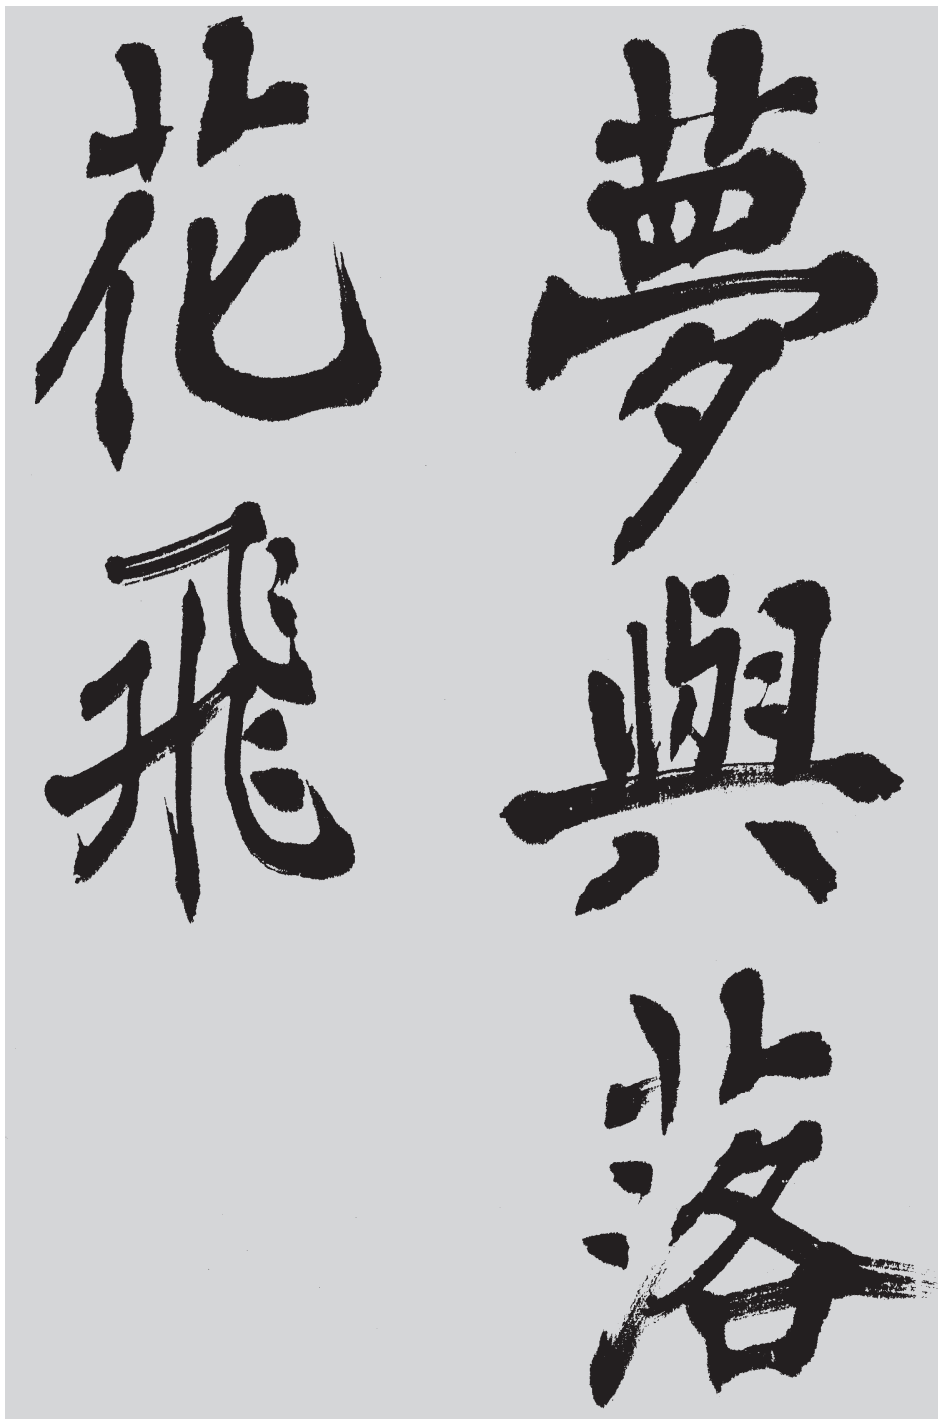 夢與落
花飛